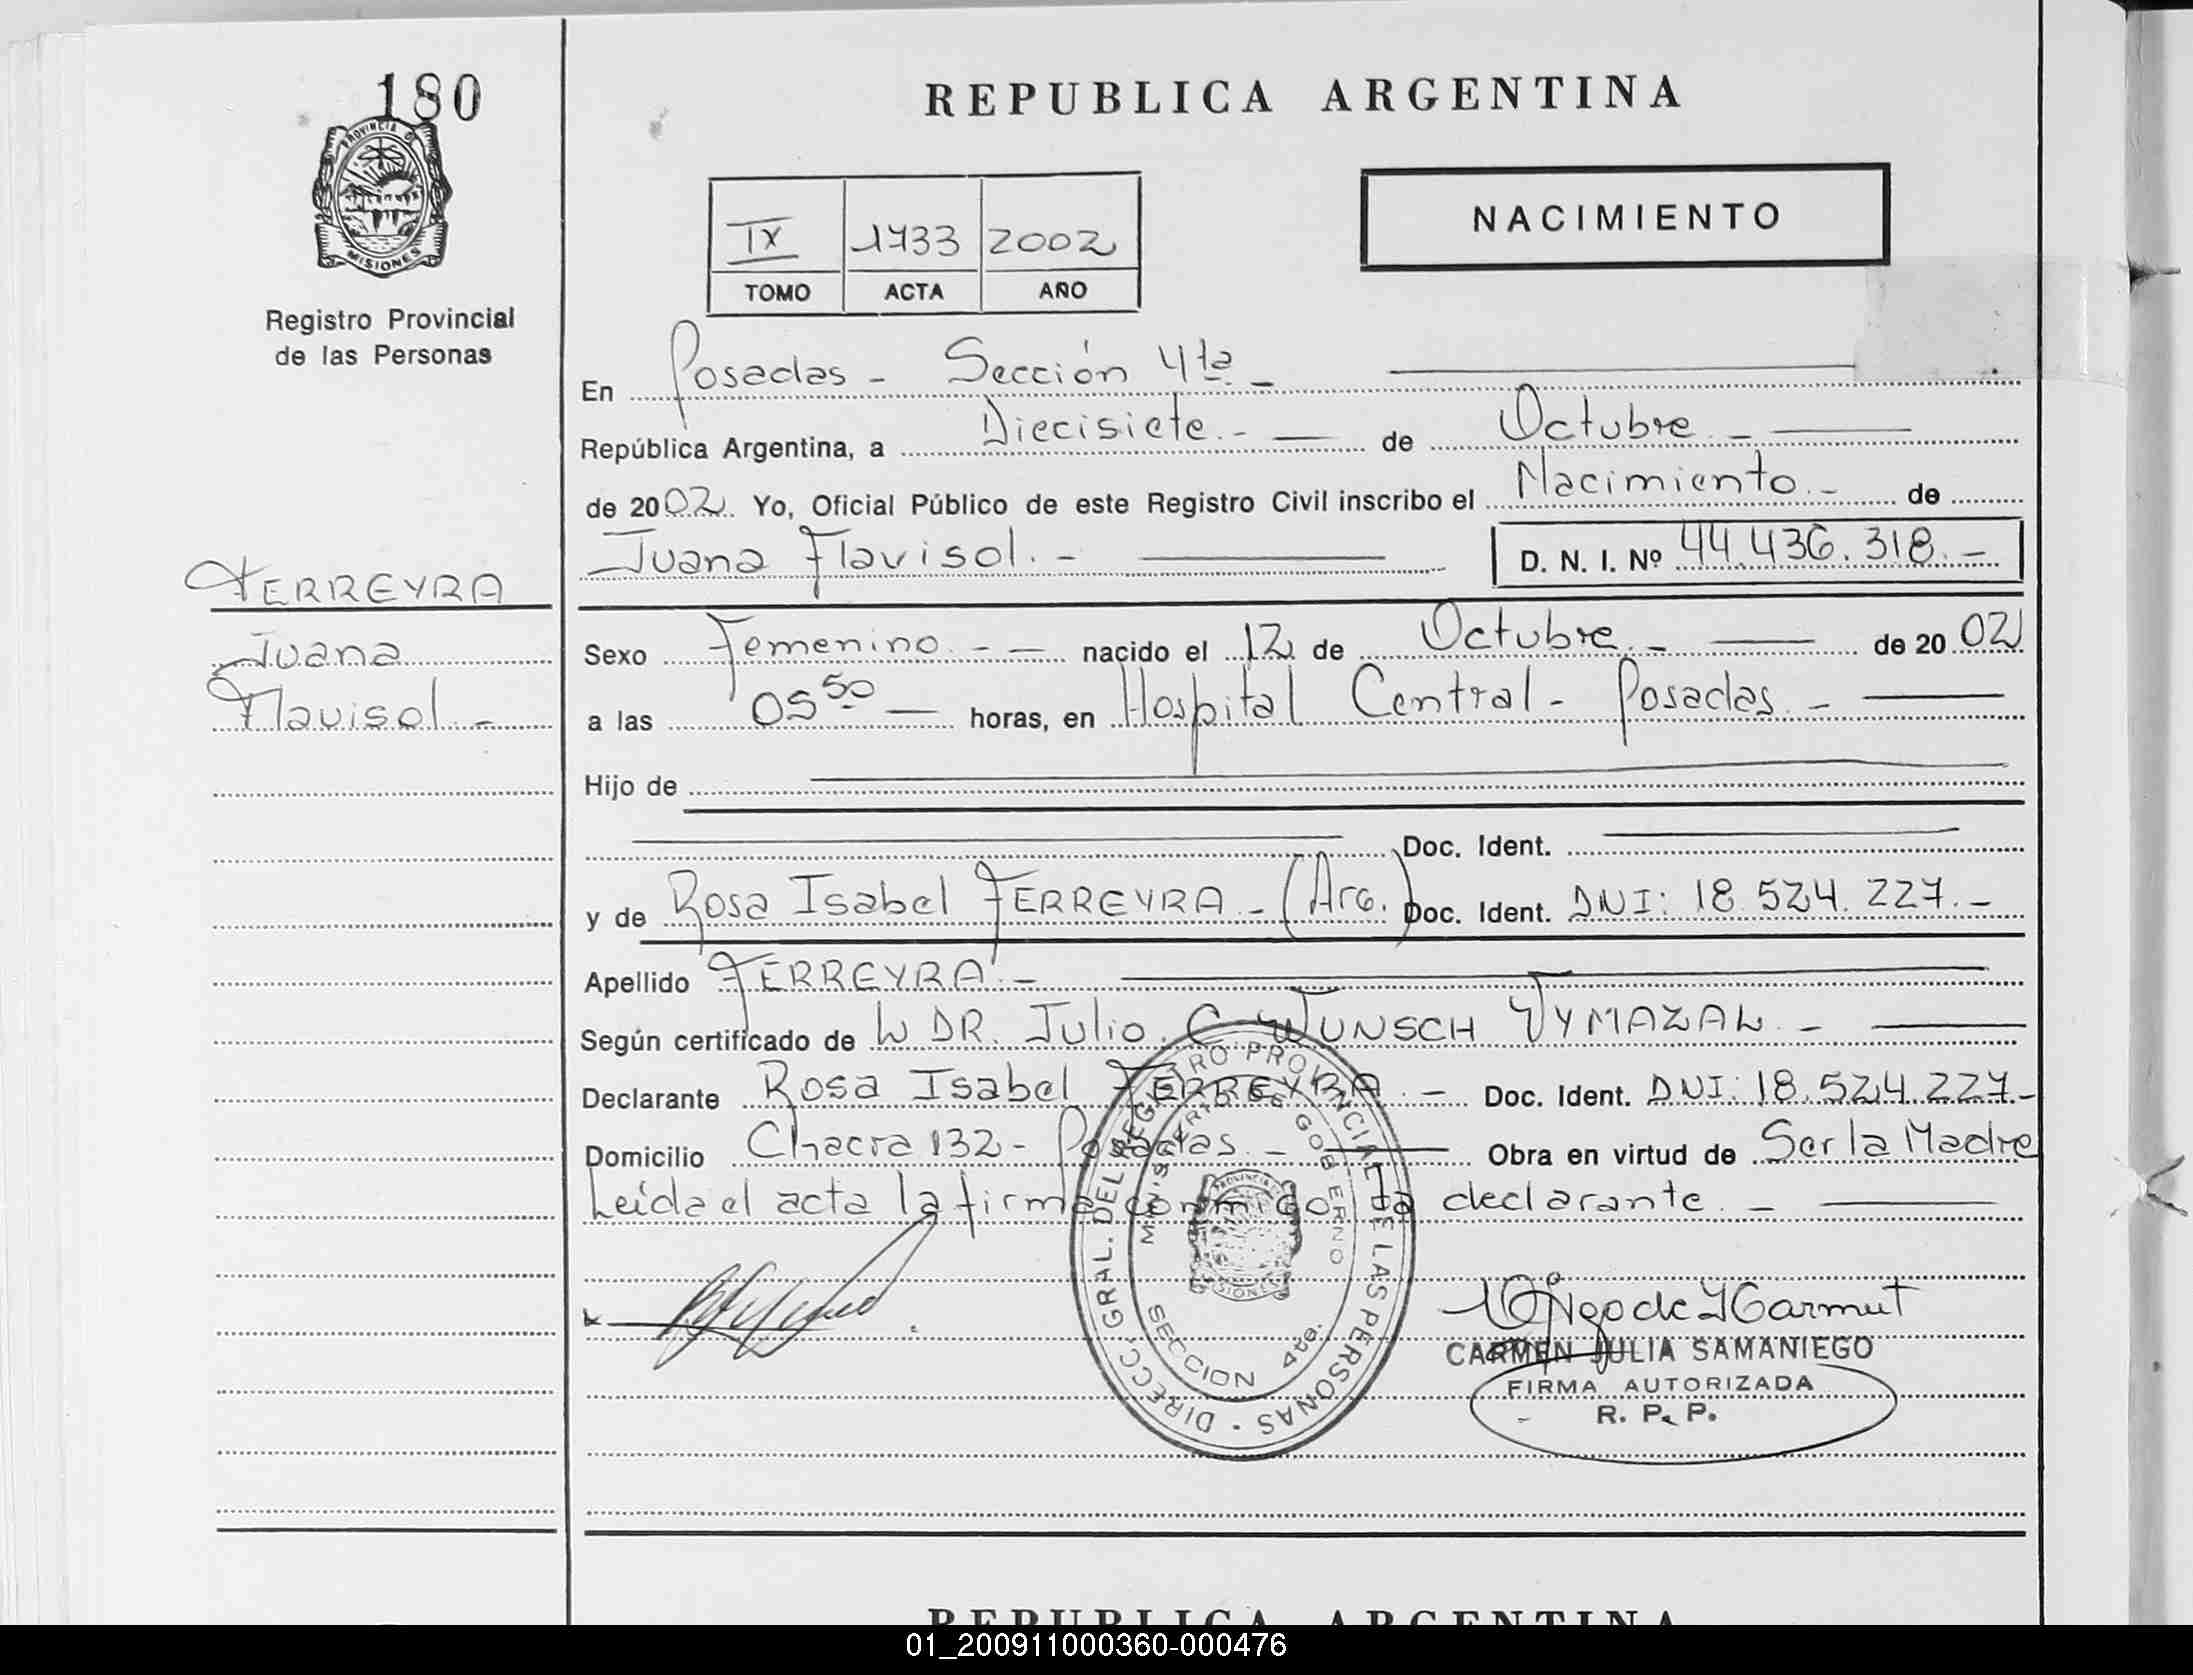 180
PROVINCIA D
MISIONES
Registro Provincial
de las Personas
REPUBLICA ARGENTINA
NACIMIENTO
IX 1433 2002
TOMO ACTA AÑO
En Posadas - Sección 4ta -
República Argentina, a Diecisiete.- de Octubre.-
de 2002. Yo, Oficial Público de este Registro Civil inscribo el Nacimiento.- de
Juana Flavisol.- D. N. I. Nº 44.436.318.-
FERREYRA
Juana
Flavisol.-
Sexo Femenino.- nacido el 12 de Octubre.- de 2002
a las 05 50 horas, en Hospital Central - Posadas.-
Hijo de
Doc. Ident.
y de Rosa Isabel FERREYRA - (Arg.) Doc. Ident. DNI: 18.524.227.-
Apellido FERREYRA.-
Según certificado de DR. Julio. C WUNSCH VYMAZAL.-
Declarante Rosa Isabel FERREYRA.- Doc. Ident. DNI: 18.524.227.-
Domicilio Chacra 132 - Posadas.- Obra en virtud de Ser la Madre
Leída el acta la firma conmigo la declarante.-
DIRECC. GRAL. DEL REGISTRO PROVINCIAL DE LAS PERSONAS
MINISTERIO DE GOBIERNO
SECCION 4ta.
CARMEN JULIA SAMANIEGO
FIRMA AUTORIZADA
R. P. P.
REPUBLICA ARGENTINA
01_200911000360-000476